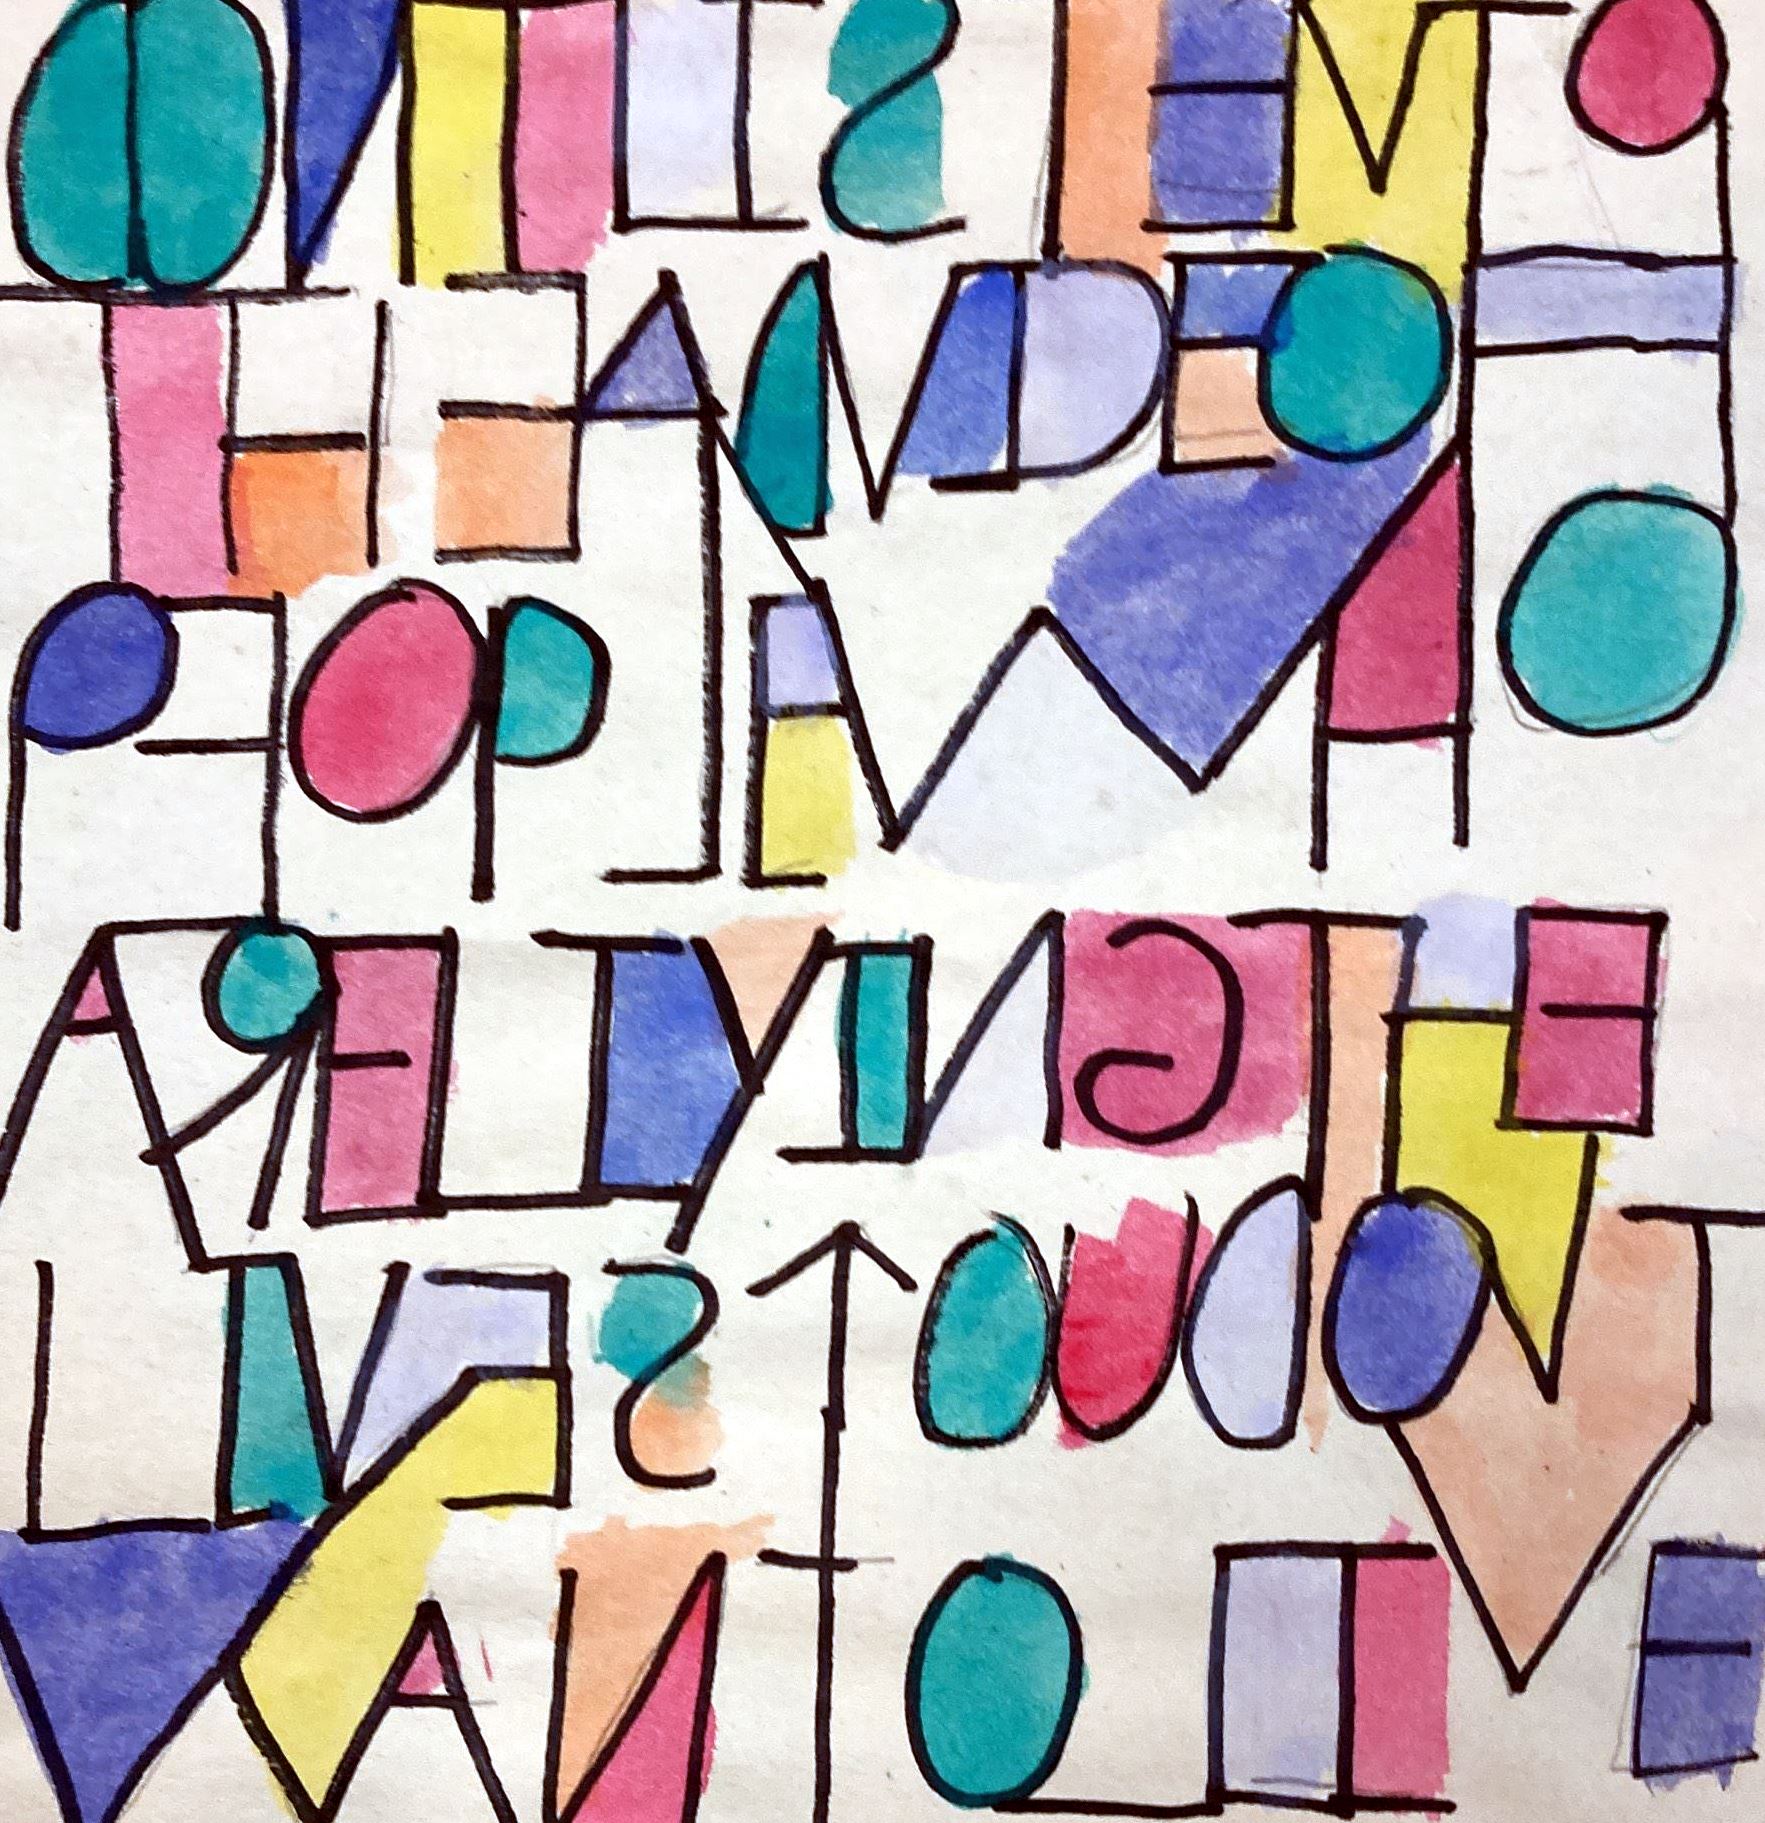 DONT LISTEN TO
THE ADVICE OF
PEOPLE WHO
ARE LIVING THE
LIVES YOU DONT
WANT TO LIVE